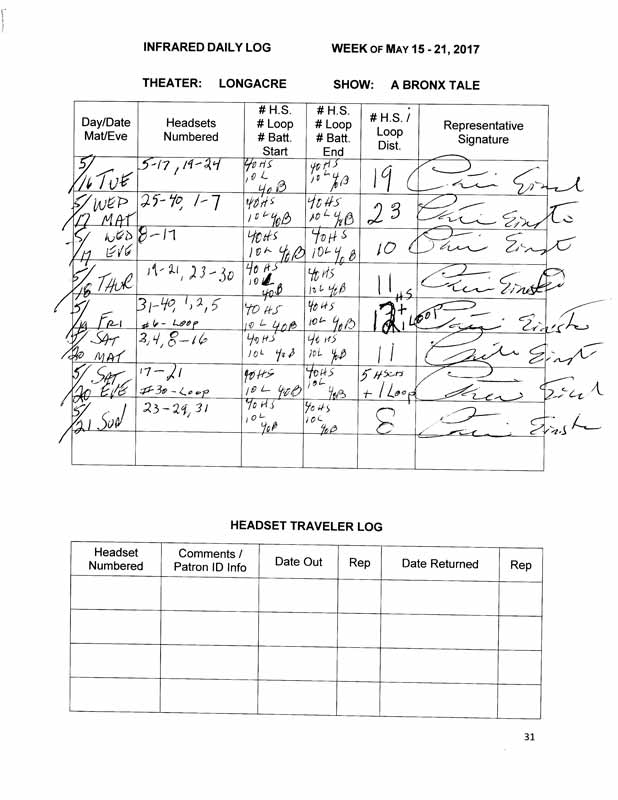 INFRARED DAILY LOG WEEK OF MAY 15 - 21, 2017
THEATER: LONGACRE SHOW: A BRONX TALE
Day/Date Mat/Eve Headsets Numbered # H.S. # Loop # Batt. Start # H.S. # Loop # Batt. End # H.S. / Loop Dist. Representative Signature
5/16 TUE 5-17, 19-24 40HS 10L 40B 40HS 10L 40B 19
5/17 WED MAT 25-40, 1-7 40HS 10L 40B 40HS 10L 40B 23
5/17 WED EVE 8-17 40HS 10L 40B 40HS 10L 40B 10
5/18 THUR 19-21, 23-30 40HS 10L 40B 40HS 10L 40B 11
5/19 FRI 31-40, 1,2,5 #6-Loop 40HS 10L 40B 40HS 10L 40B HS + 1 LOOP
5/20 SAT MAT 3,4,8-16 40HS 10L 40B 40HS 10L 40B 11
5/20 SAT EVE 17-21 #30-Loop 40HS 10L 40B 40HS 10L 40B 5 + 1 Loop
5/21 SUN 23-29, 31 40HS 10L 40B 40HS 10L 40B 8
HEADSET TRAVELER LOG
Headset Numbered Comments / Patron ID Info Date Out Rep Date Returned Rep
31